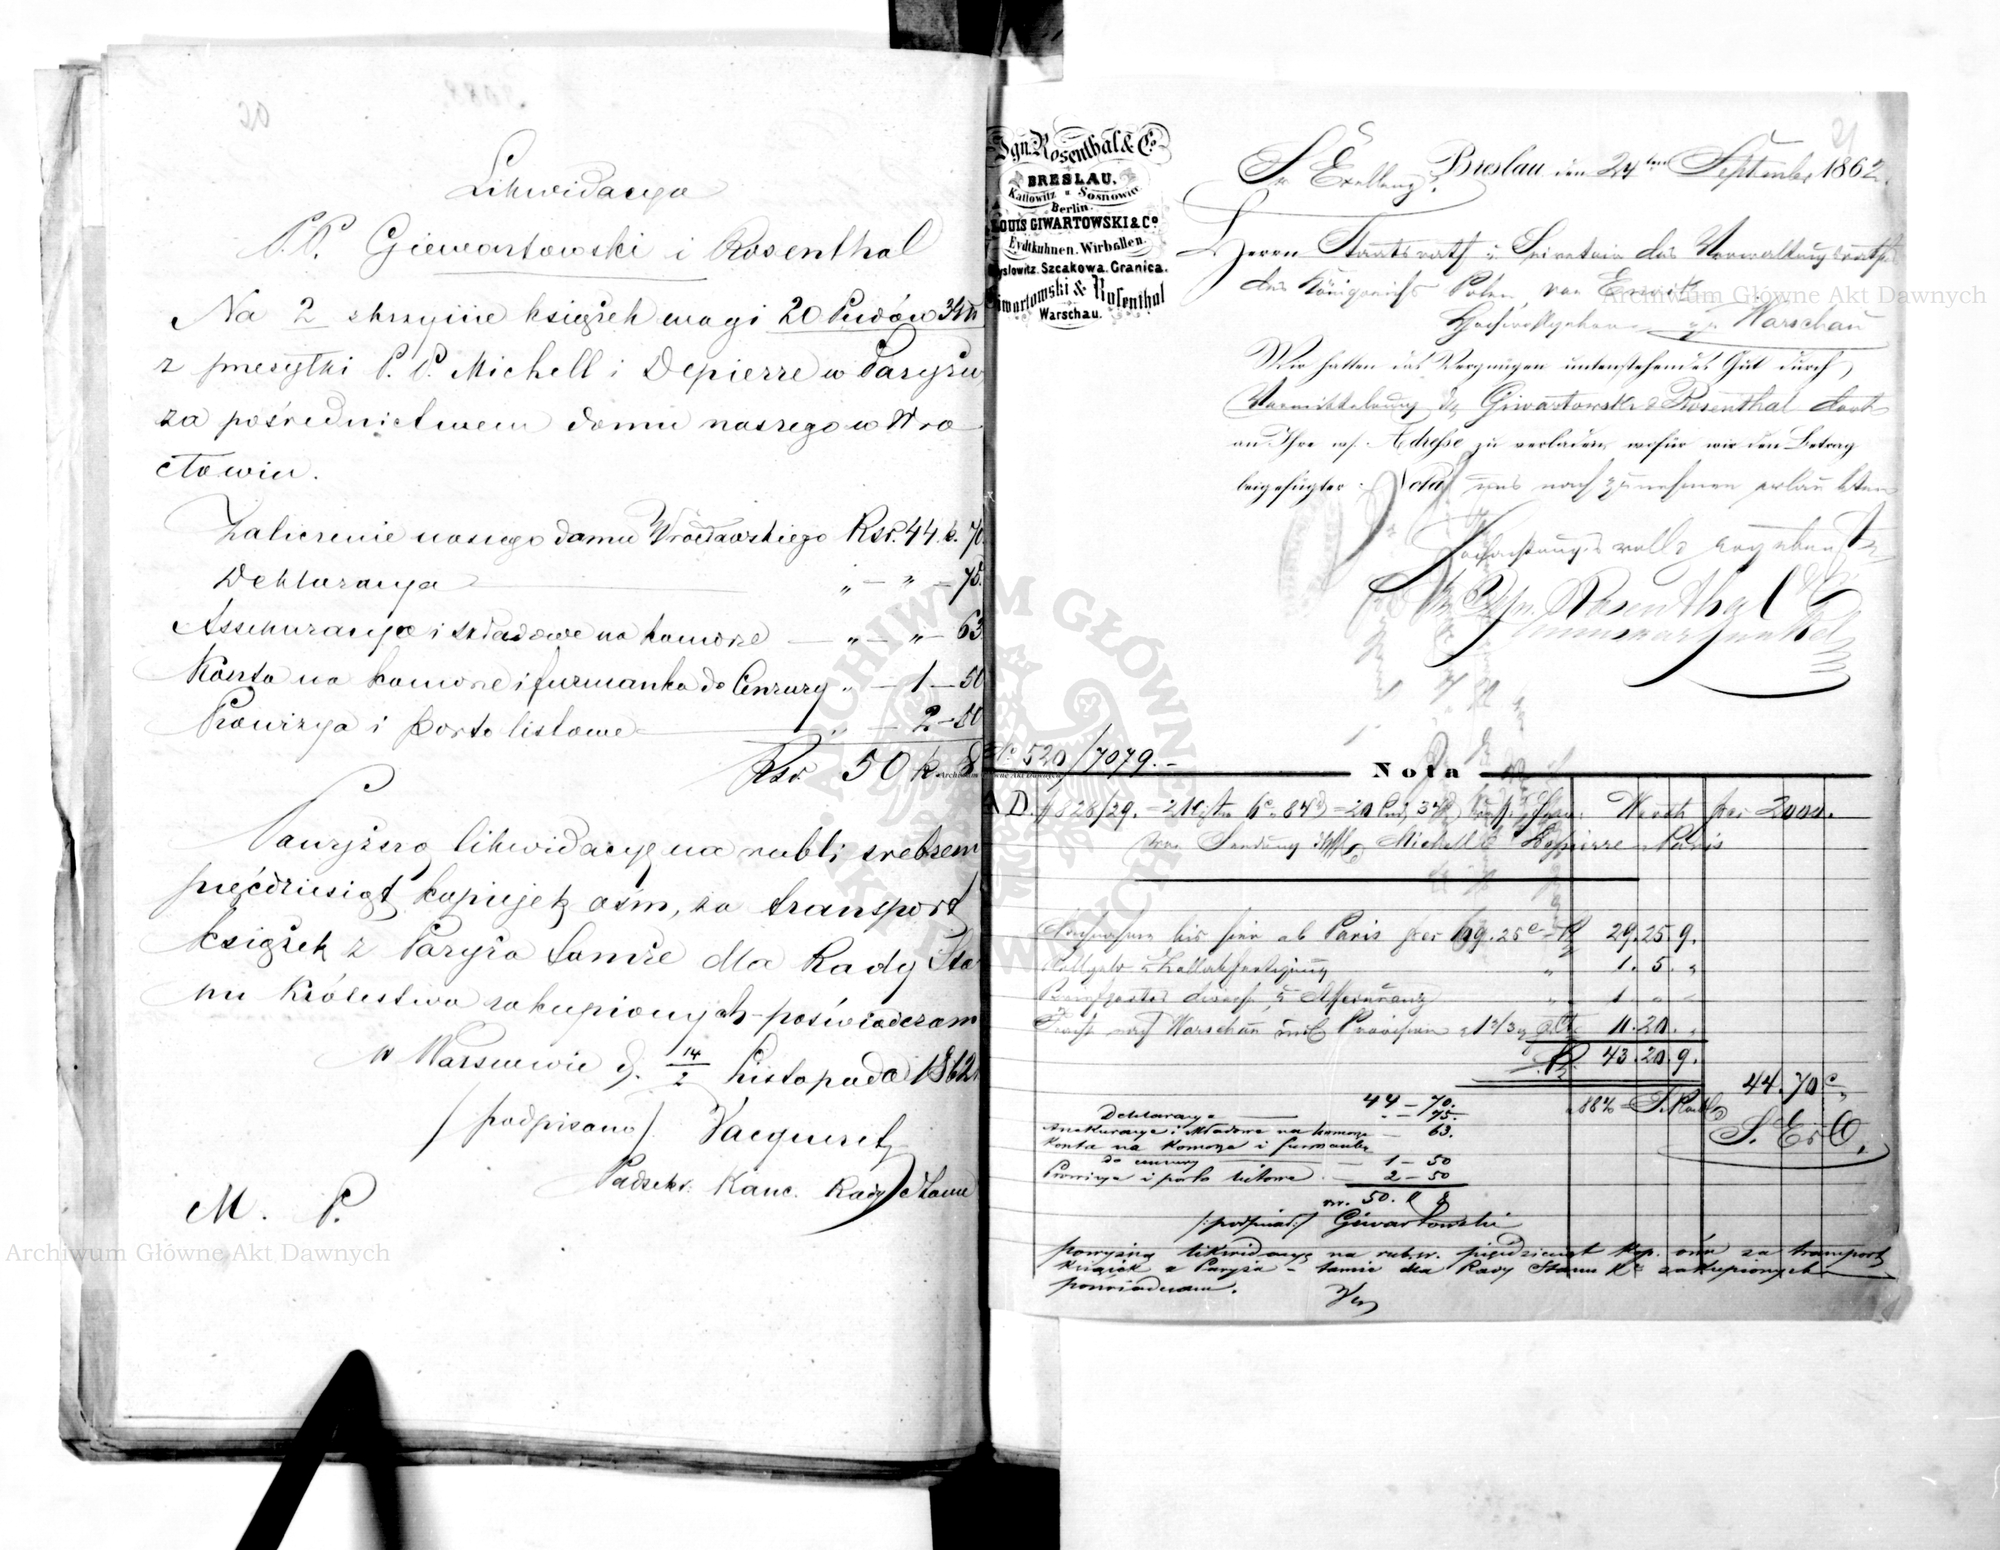 Likwidacya
P.P. Giewartowski i Rosenthal
Na 2 skrzynie książek wagi 20 Pudów 34
z przesyłki P.P. Michell i Depierre w Paryżu
za pośrednictwem domu naszego w Wro
cławiu.
Zaliczenie naszego domu Wrocławskiego Rsr. 44 k. 70
Deklaracya „ — „ — 75.
Assekuracya i składowe na komorze — „ — „ — 63
Koszta na komorze i furmanka do Cenzury „ — 1 — 50
Prowizya i porto listowe „ — 2 — 50
Rsr. 50 k. 8
Powyższą likwidacyę na rubli srebrem
pięćdziesiąt kopiejek ośm, za transport
książek z Paryża tamże dla Rady Sta
nu Królestwa zakupionych poświadczam
w Warszawie d. 14/2 Listopada 1862 r.
/podpisano/
Podsekr. Kanc. Rady Stanu
M. P.
21
Ign. Rosenthal & Co.
BRESLAU.
Kattowitz u Sosnowice
Berlin.
LOUIS GIWARTOWSKI & Co
Eydtkuhnen. Wirballen.
Myslowitz. Szcakowa. Granica.
Giwartowski & Rosenthal
Warschau.
Breslau den 24ten September 1862.
Sr Exellenz
Herrn Staatsrath u Secretair des Verwaltungsraths
des Königreichs Polen, von
Hochwohlgeboren Warschau
Wir hatten das Vergnügen untenstehendes Gut durch
Vermittelung d. Giwartowski & Rosenthal dort
an Ihre w. Adresse zu verladen, wofür wir den Betrag
beigefügter Nota uns nach zu nehmen erlaubten
Hochachtungsvoll ergebenst
Ign. Rosenthal & Co
No 520/7079.
Nota
A.D. # 828/29. = 2 Kisten = 20 Pud, 34 Werth frs 2000.
von Sendung Michell & Depierre Paris
Nachnahme bis hier ab Paris frcs 29. 25. 9.
Rollgeld 1. 5. „
1 „ „
Fracht nach Warschau incl Provision 11. 20. „
43. 20. 9.
44. 70 c
44 — 70.
Deklaracya — 75.
Asekuracya i składowe na komorze — 63.
Koszta na komorze i furmanka
do cenzury — 1 — 50
Prowizya i porto listowe — 2 — 50
rsr. 50. k 8
/:podpisał:/ Giwartowski
Powyższą likwidacyę na rub. sr. pięćdziesiąt kop. ośm za transport
książek z Paryża — tamże dla Rady Stanu Kr. zakupionych
poświadczam.
Archiwum Główne Akt Dawnych
Archiwum Główne Akt Dawnych
Archiwum Główne Akt Dawnych
ARCHIWUM GŁÓWNE AKT DAWNYCH